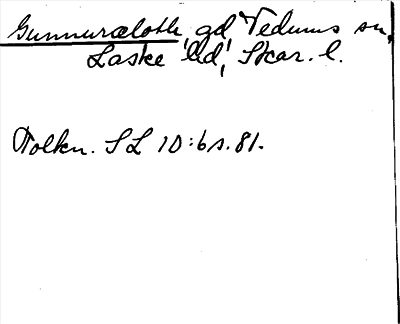 Gunnuraloth, gd, Tedums sn,
Laske hd, Skar. l.
Tolkn. SL 10:6 s. 81.